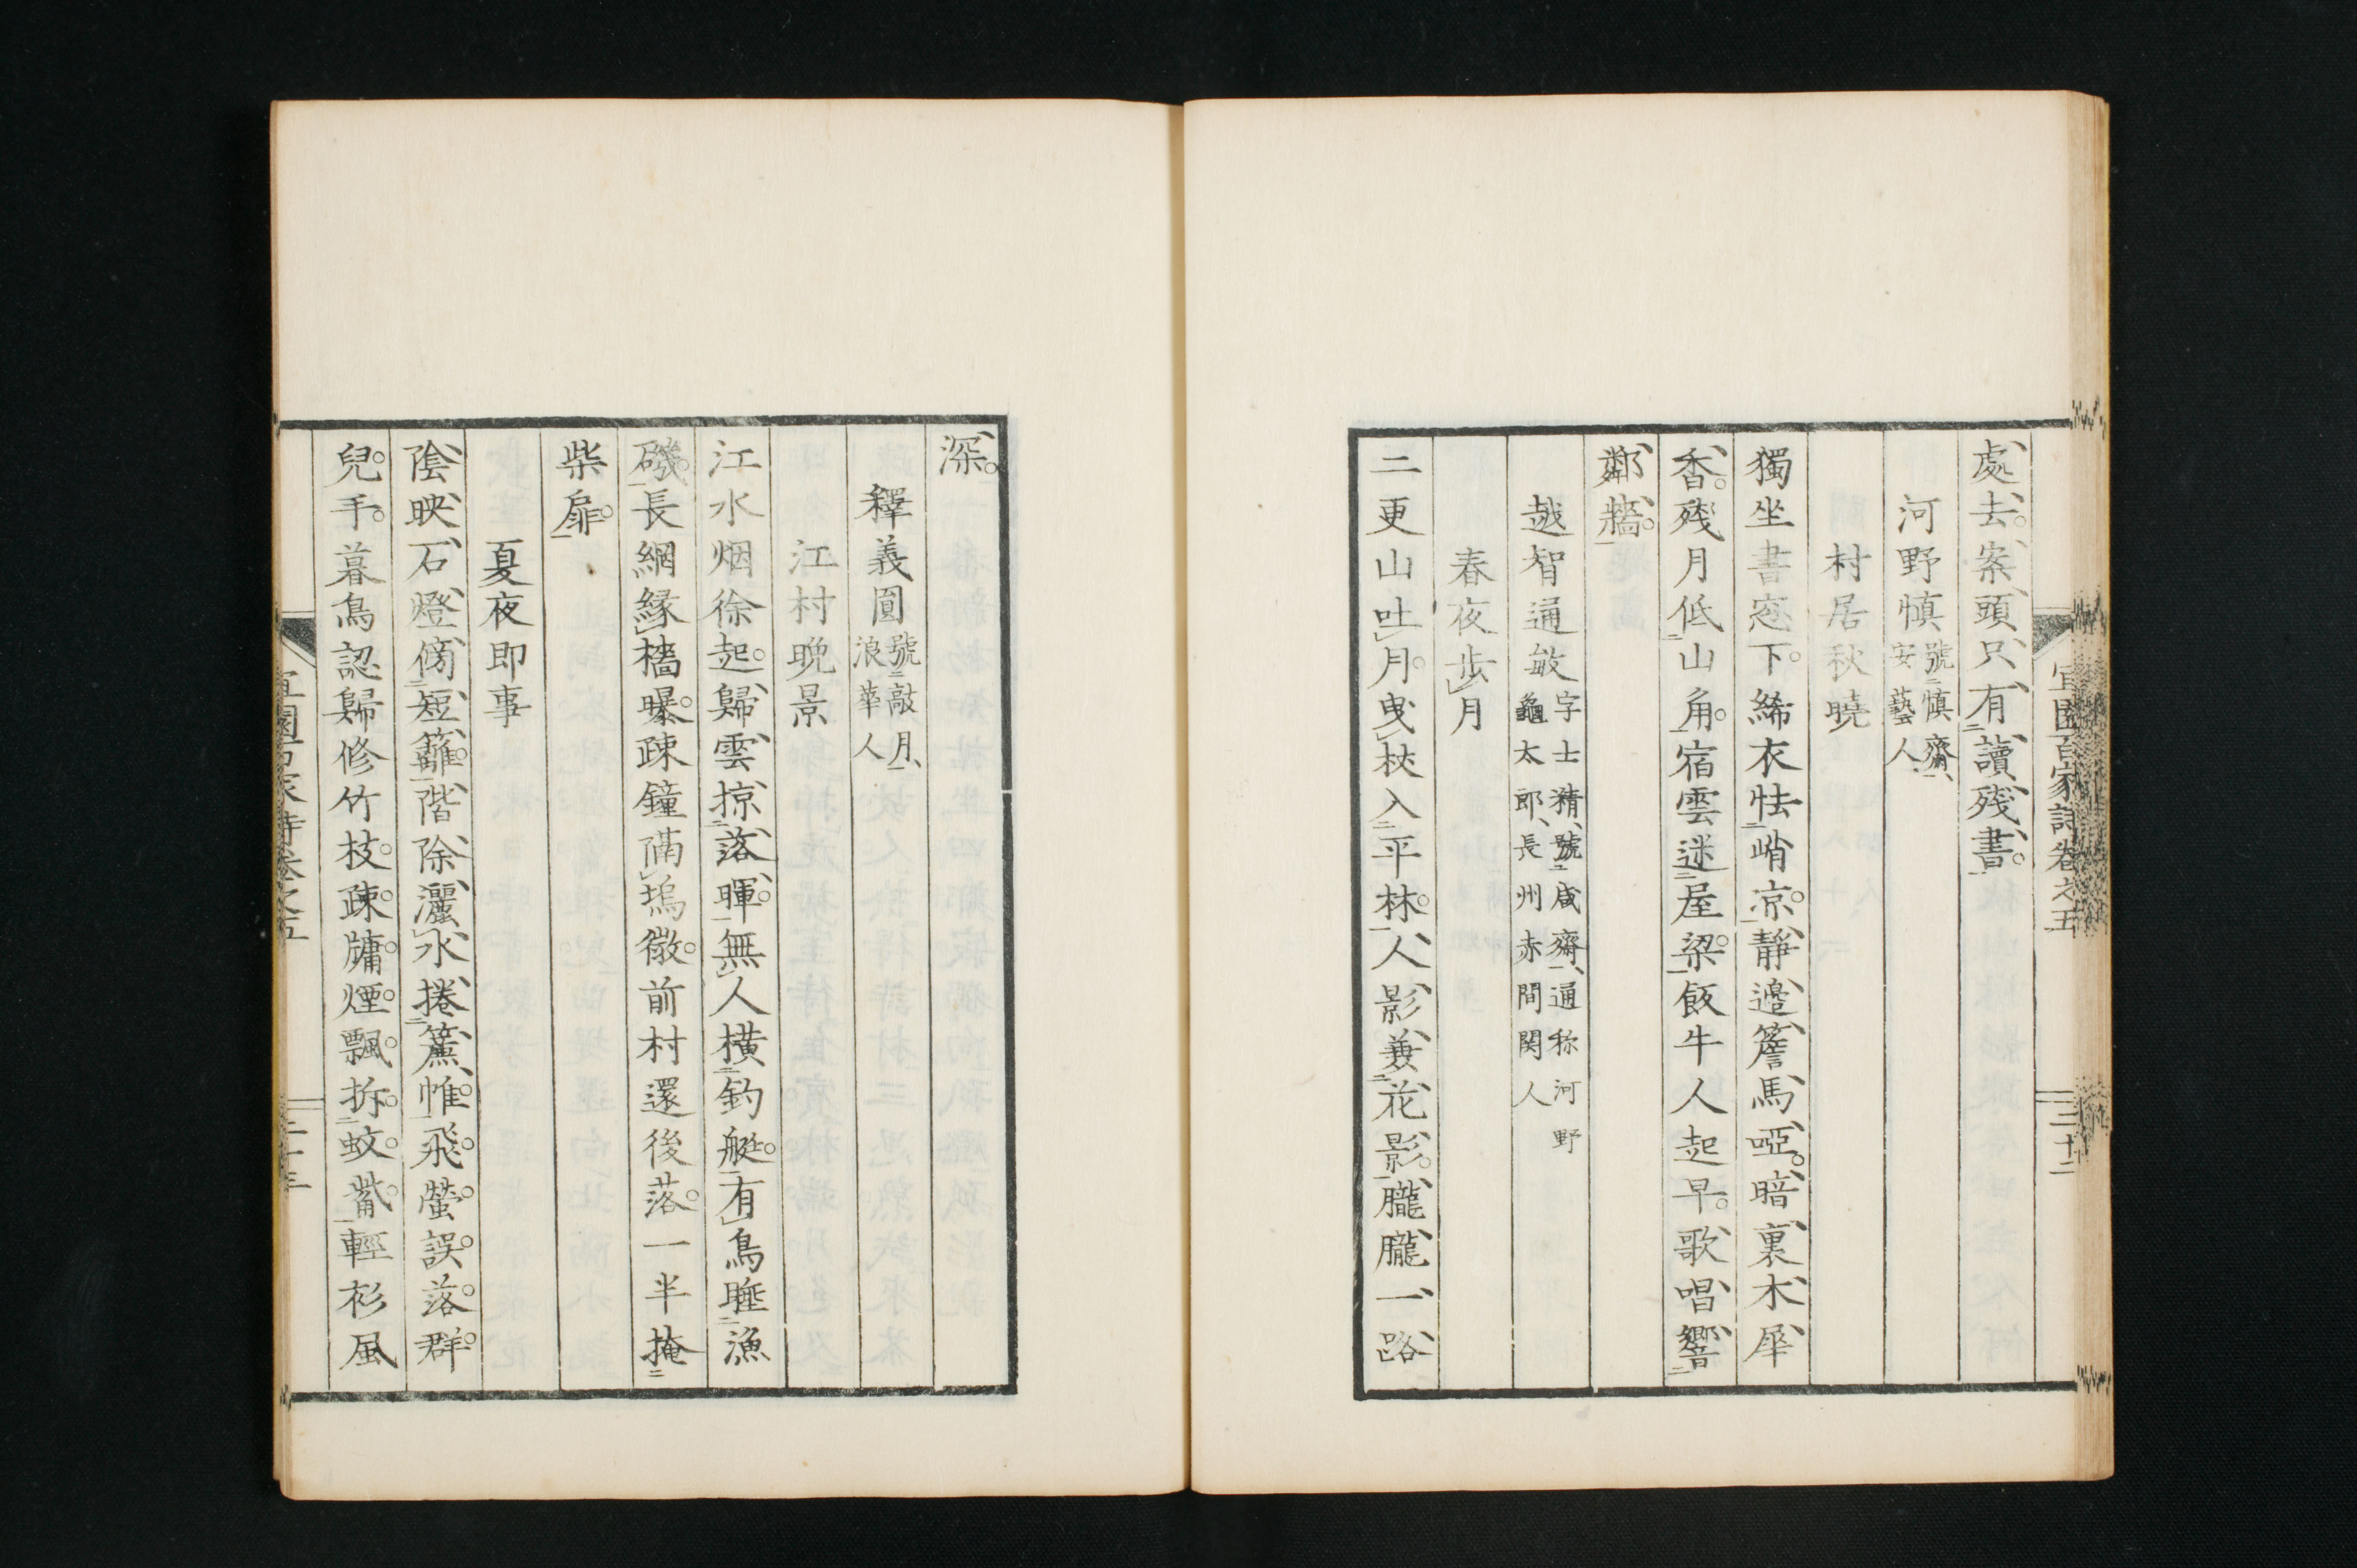 宜園百家詩卷之五
三十二
處去案頭只有讀殘書
河野慎號慎齋安藝人
村居秋曉
獨坐書窓下絺衣怯峭凉靜邉簷馬啞暗裏木犀
香殘月低山角宿雲迷屋梁飯牛人起早歌唱響
鄰牆
越智通敏字士精號咸齋通称河野龜太郎長州赤間関人
春夜歩月
二更山吐月曳杖入平林人影兼花影朧朧一路
深
釋義圓號敲月浪華人
江村晩景
江水烟徐起歸雲掠落暉無人横釣艇有鳥睡漁
磯長網縁檣曝疎鐘隔塢微前村還後落一半掩
柴扉
夏夜即事
陰映石燈傍短籬階除灑水捲簾帷飛螢誤落群
兒手暮鳥認歸修竹枝疎牗煙飄拆蚊輕衫風
宜園百家詩卷之五
三十三